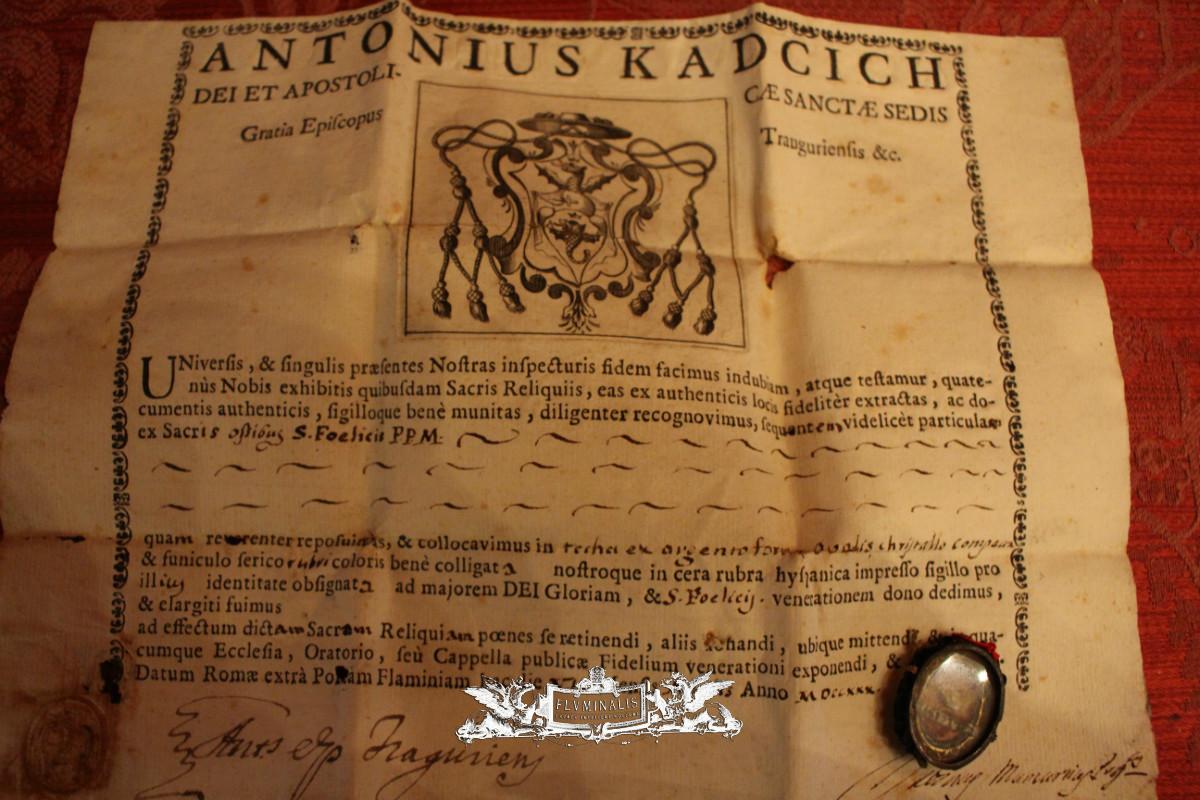 ANTONIUS KADCICH
DEI ET APOSTOLI- CÆ SANCTÆ SEDIS
Gratia Epiſcopus Trauguriensis &c.
UNiverſis, & ſingulis præſentes Noſtras inſpecturis fidem facimus indubiam, atque teſtamur, quate-
nùs Nobis exhibitis quibuſdam Sacris Reliquiis, eas ex authenticis locis fidelitèr extractas, ac do-
cumentis authenticis, ſigilloque benè munitas, diligenter recognovimus, ſequentem videlicèt particulam
ex Sacris oſſibus S. Foelicis P.P.M:
quam reverenter repoſuimus, & collocavimus in techa ex argento forma ovalis chriſtallo
& funiculo ſerico rubri coloris benè colligata noſtroque in cera rubra hyſpanica impreſſo ſigillo pro
illius identitate obſignata ad majorem DEI Gloriam, & S. Foelicis venerationem dono dedimus,
& elargiti fuimus
ad effectum dictam Sacram Reliquiam pœnes ſe retinendi, aliis donandi, ubique mittendi,
cumque Eccleſia, Oratorio, ſeù Cappella publicæ Fidelium venerationi exponendi, &
Datum Romæ extrà Portam Flaminiam Anno
FLVMINALIS
Ants ep Traguriens